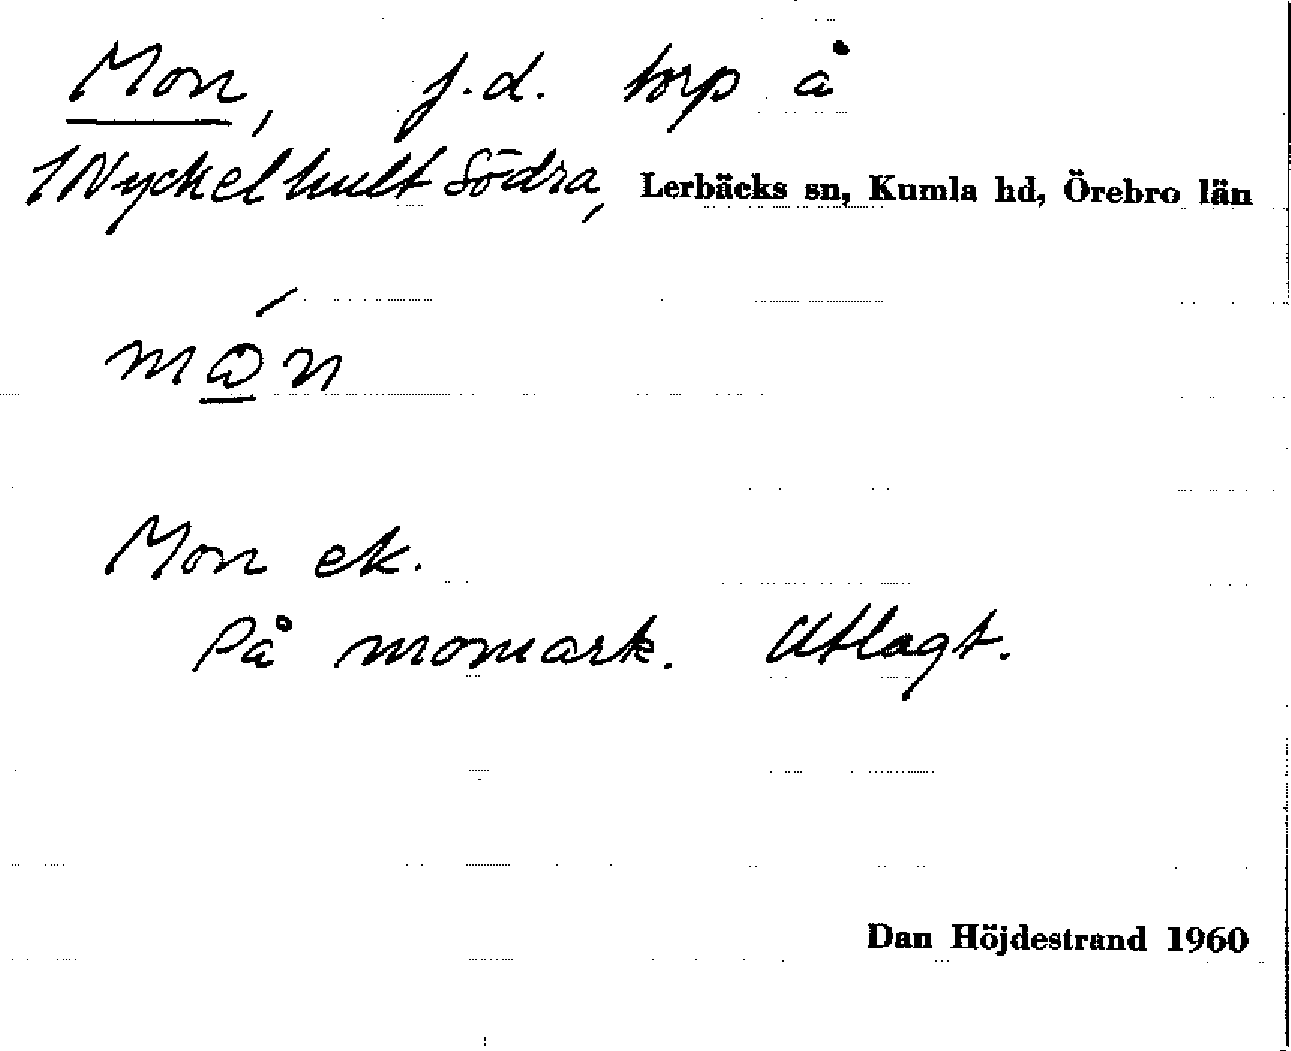 Mon, f.d. torp å
1 Nyckelhult Södra, Lerbäcks sn, Kumla hd, Örebro län
mώ̲n
Mon ek.
På momark. Utlagt.
Dan Höjdestrand 1960